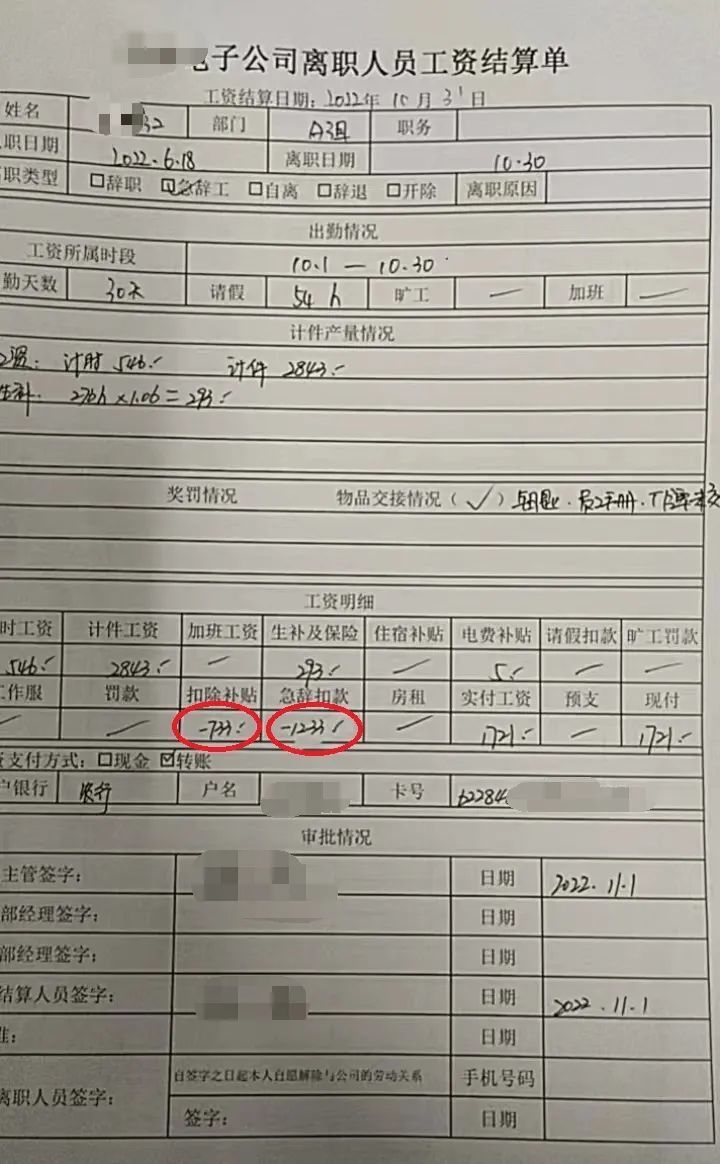 电子公司离职人员工资结算单
工资结算日期：2022年10月31日
姓名 32 部门 A组 职务
职日期 2022.6.18 离职日期 10.30
职类型 辞职 急辞工 自离 辞退 开除 离职原因
出勤情况
工资所属时段 10.1 — 10.30
勤天数 30天 请假 54h 旷工 — 加班 —
计件产量情况
计时 546.- 计件 2843.-
276h×1.06=293.-
奖罚情况 物品交接情况（✓）员工手册.
工资明细
时工资 计件工资 加班工资 生补及保险 住宿补贴 电费补贴 请假扣款 旷工罚款
546.- 2843.- — 293.- — 5.- — —
工作服 罚款 扣除补贴 急辞扣款 房租 实付工资 预支 现付
— — -733.- -1233.- — 1721.- — 1721.-
支付方式：现金 转账
户银行 农行 户名 卡号 62284
审批情况
主管签字： 日期 2022.11.1
部经理签字： 日期
部经理签字： 日期
结算人员签字： 日期 2022.11.1
准： 日期
自签字之日起本人自愿解除与公司的劳动关系 手机号码
离职人员签字：
签字： 日期